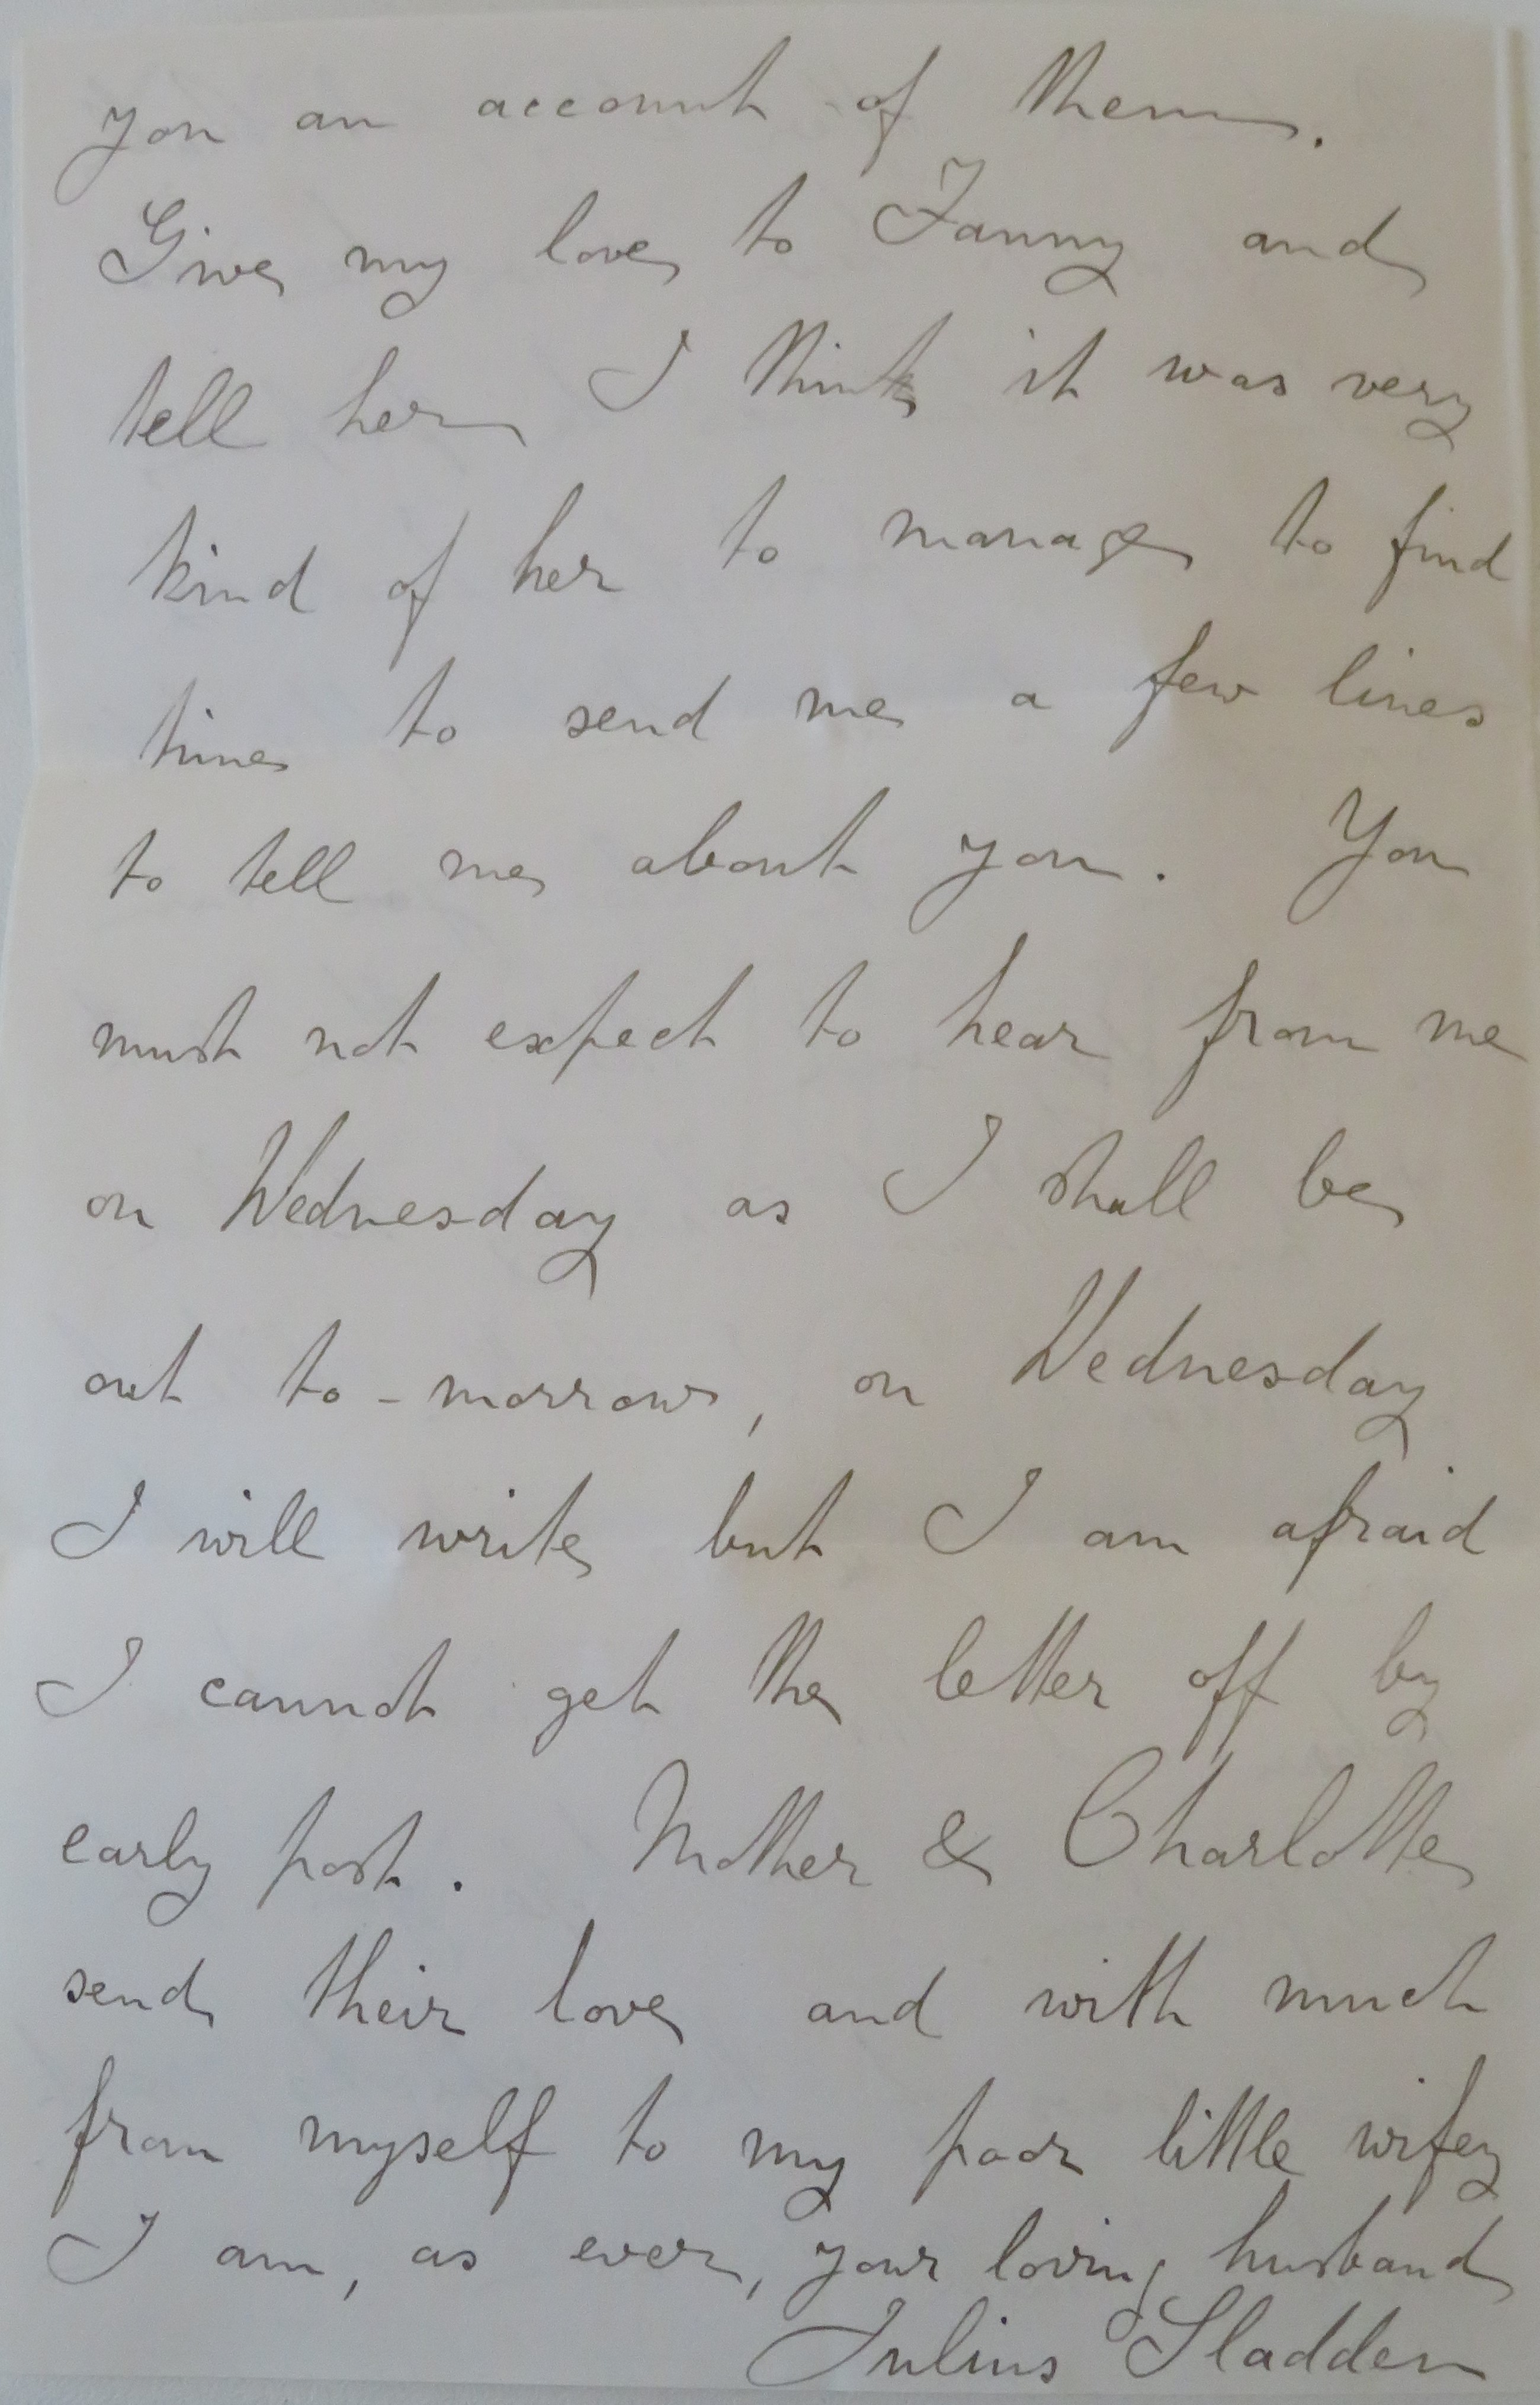 you an account of them.
Give my love to Fanny and
tell her I think it was very
kind of her to manage to find
time to send me a few lines
to tell me about you. You
must not expect to hear from me
on Wednesday as I shall be
out to-morrow, on Wednesday
I will write but I am afraid
I cannot get the letter off by
early post. Mother & Charlotte
send their love and with much
from myself to my poor little wifey
I am, as ever, your loving husband
Julius Sladden